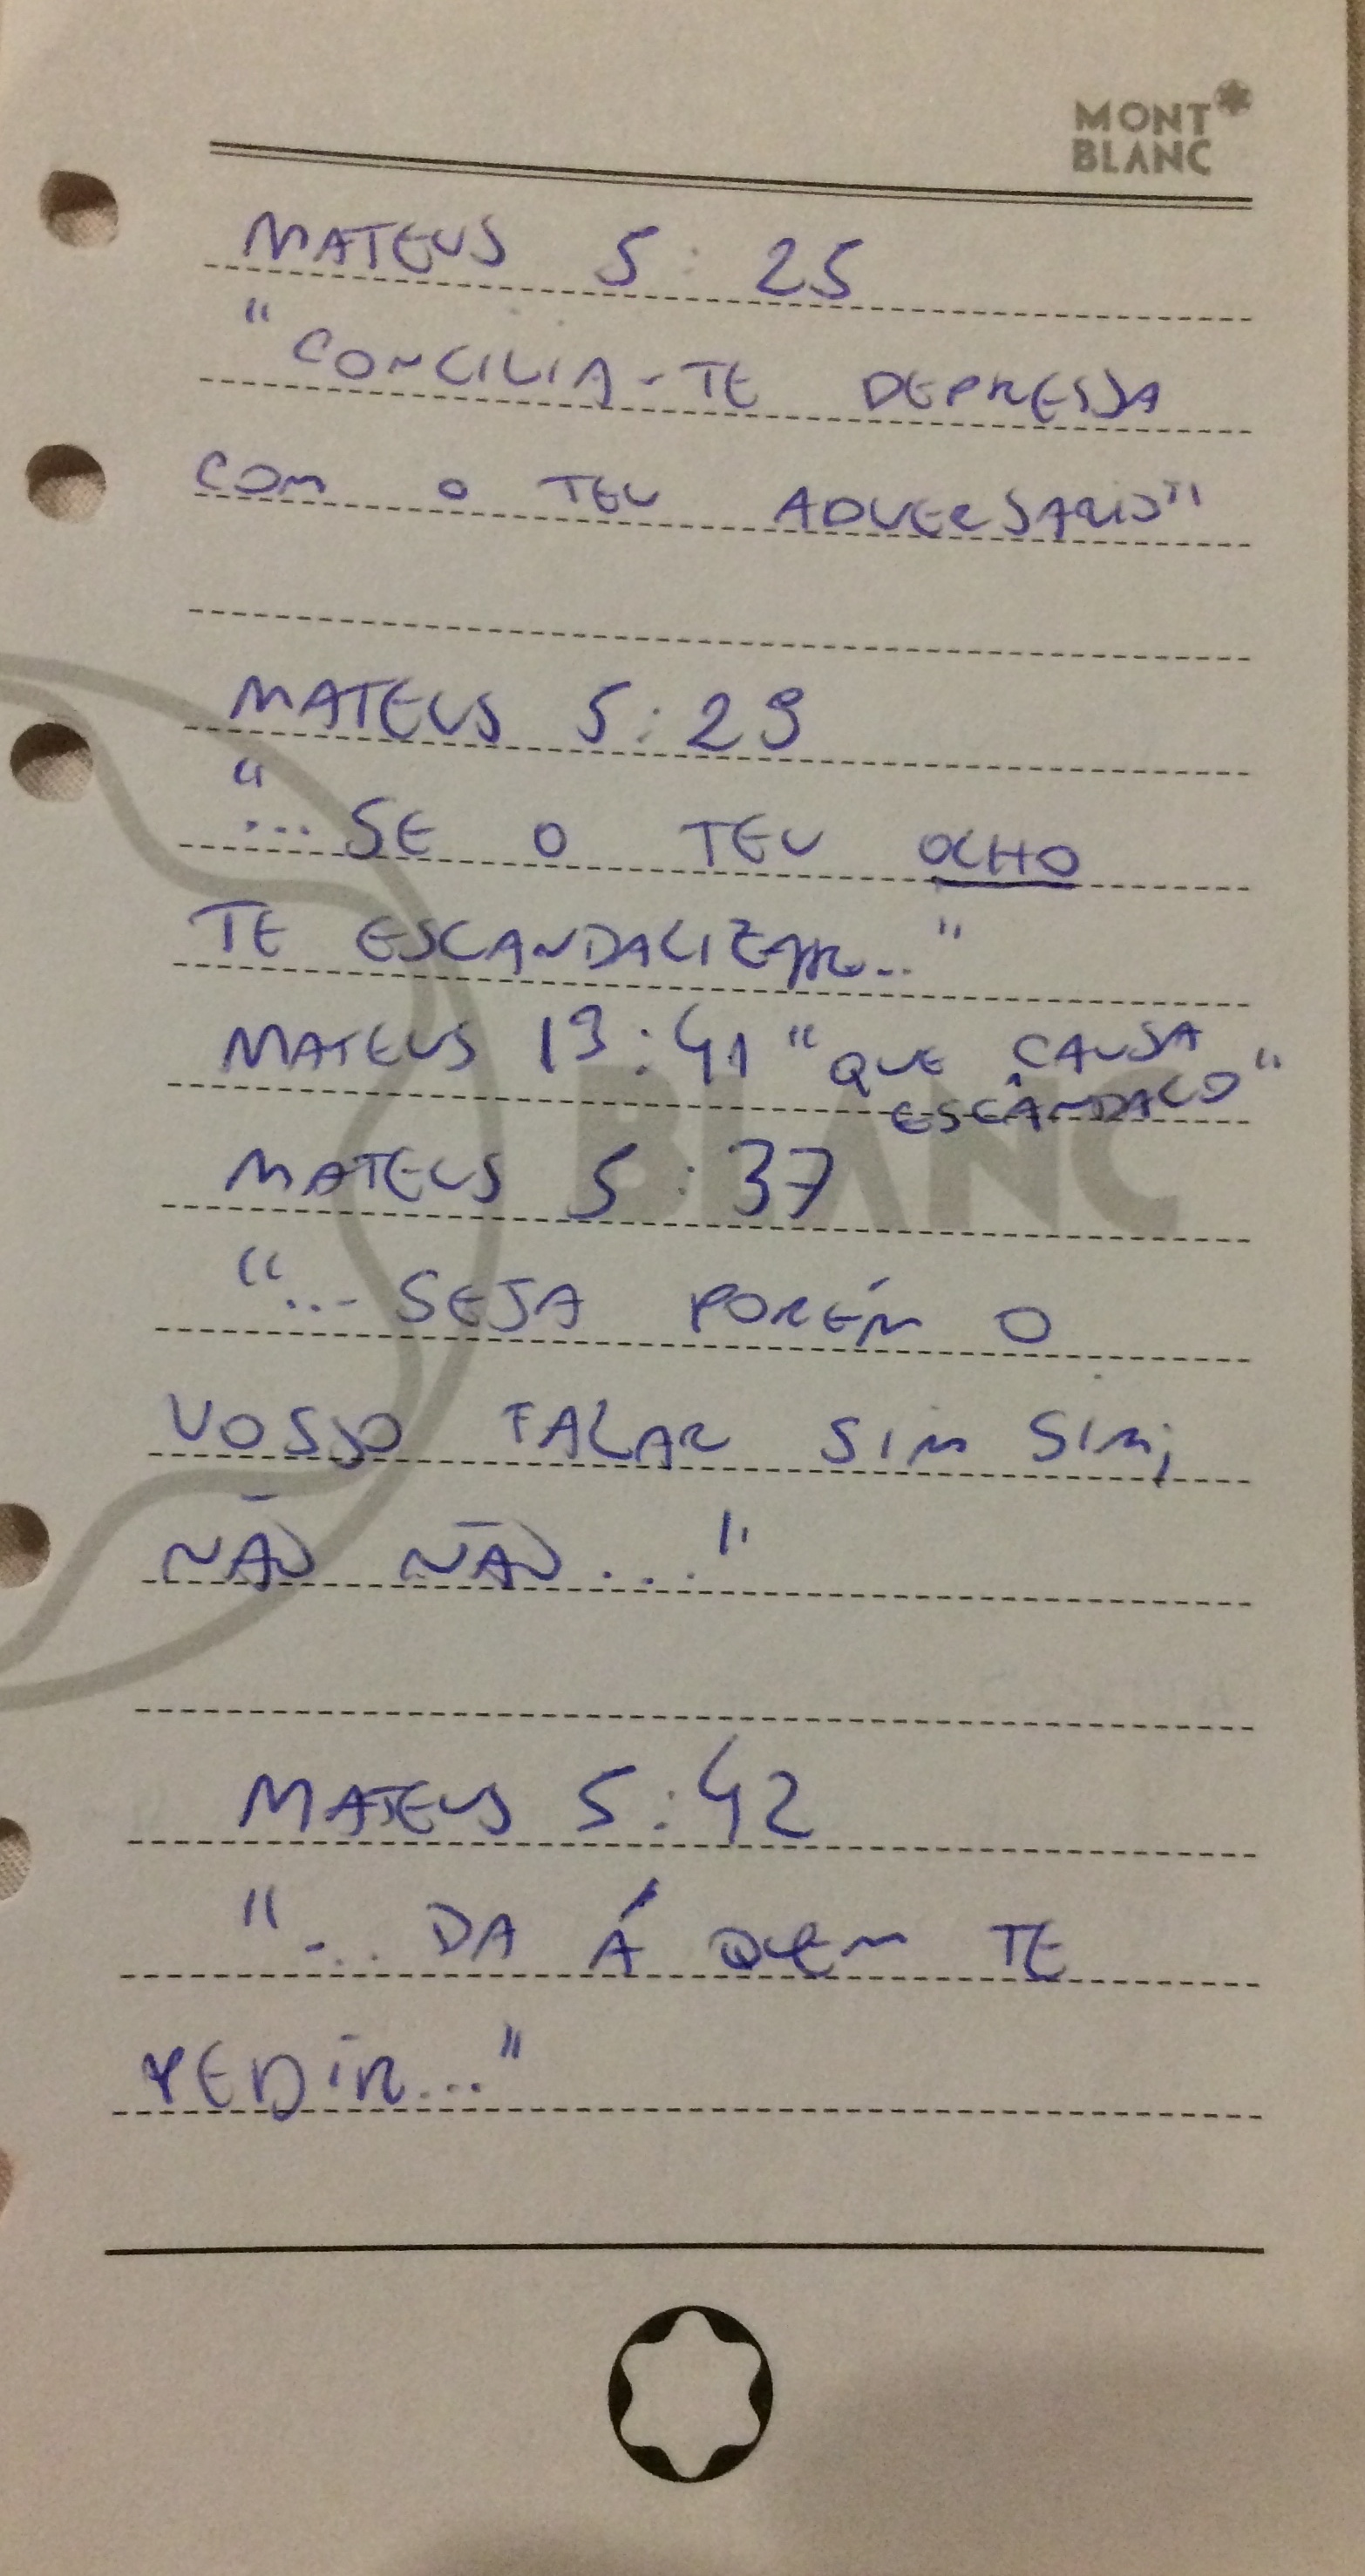 MONT
BLANC
MATEUS 5:25
"CONCILIA-TE DEPRESSA
COM O TEU ADVERSARIO"
MATEUS 5:29
"...SE O TEU OLHO
TE ESCANDALIZAR..."
MATEUS 13:41 "QUE CAUSA
ESCÂNDALO"
BLANC
MATEUS 5:37
"...SEJA PORÉM O
VOSSO FALAR SIM SIM;
NÃO NÃO..."
MATEUS 5:42
"...DA Á QUEM TE
PEDIR..."